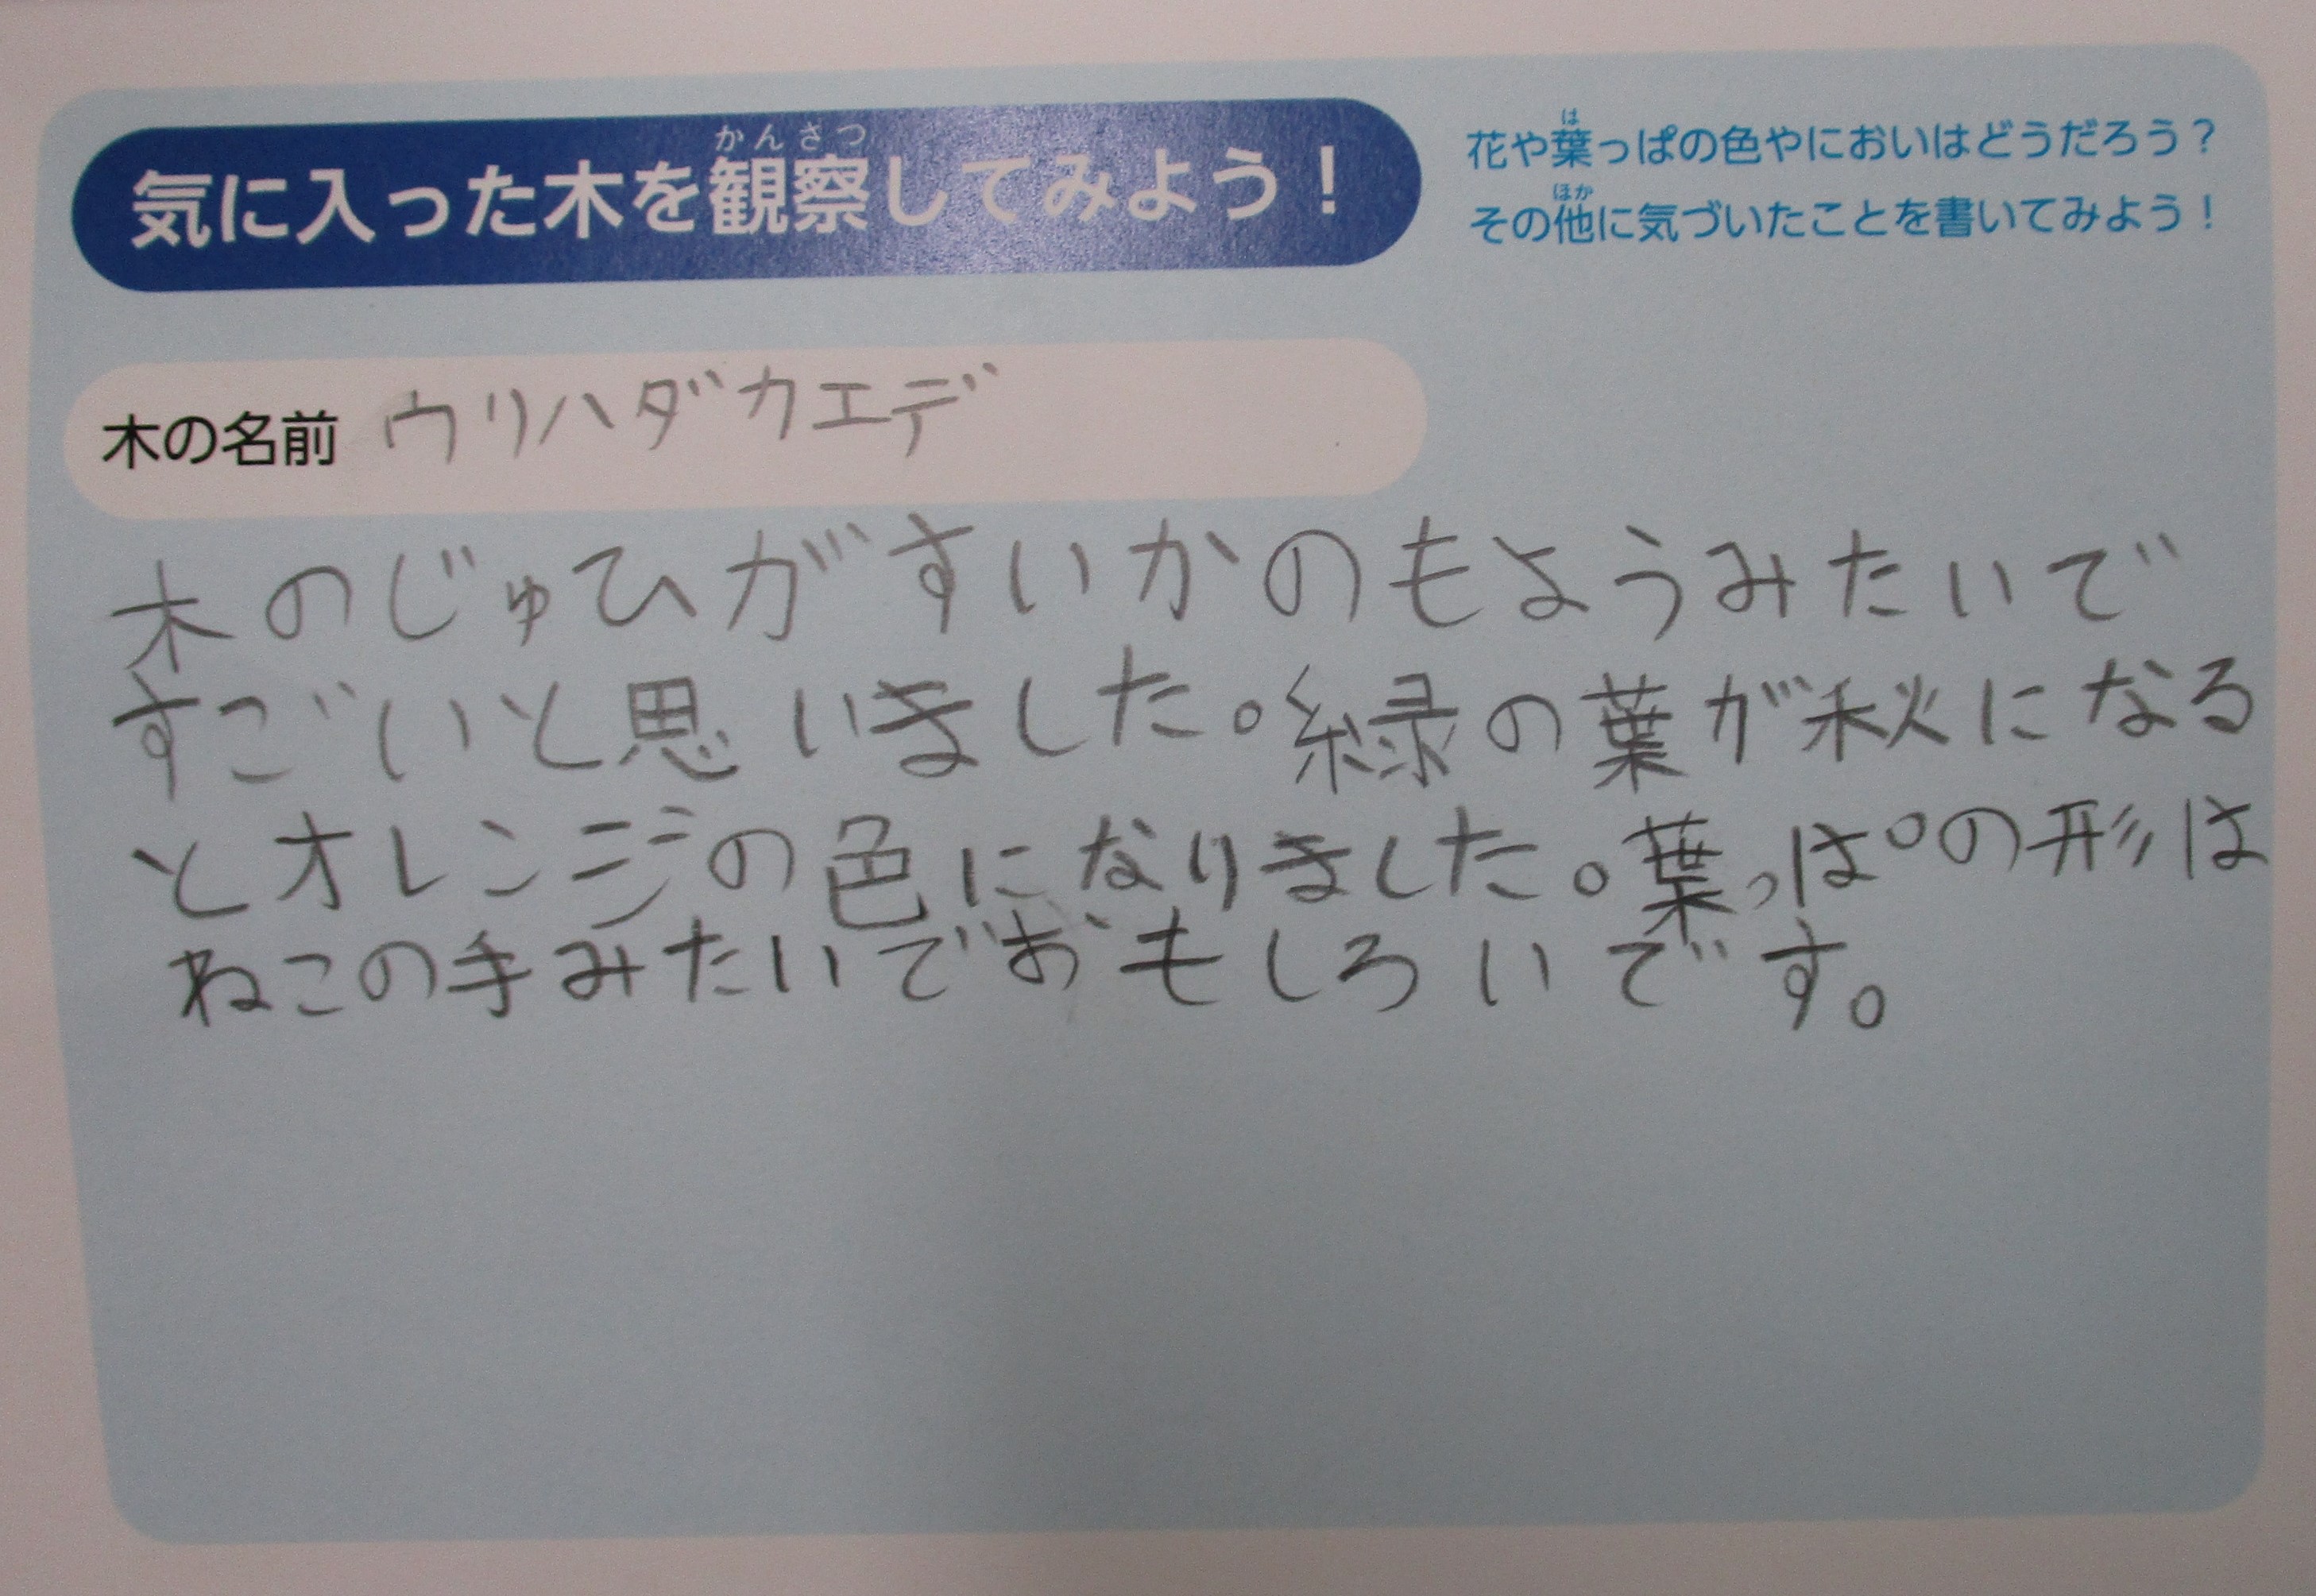 かんさつ
気に入った木を観察してみよう！
は
花や葉っぱの色やにおいはどうだろう？
ほか
その他に気づいたことを書いてみよう！
木の名前 ウリハダカエデ
木のじゅひがすいかのもようみたいで
すごいと思いました。緑の葉が秋になる
とオレンジの色になりました。葉っぱの形は
ねこの手みたいでおもしろいです。